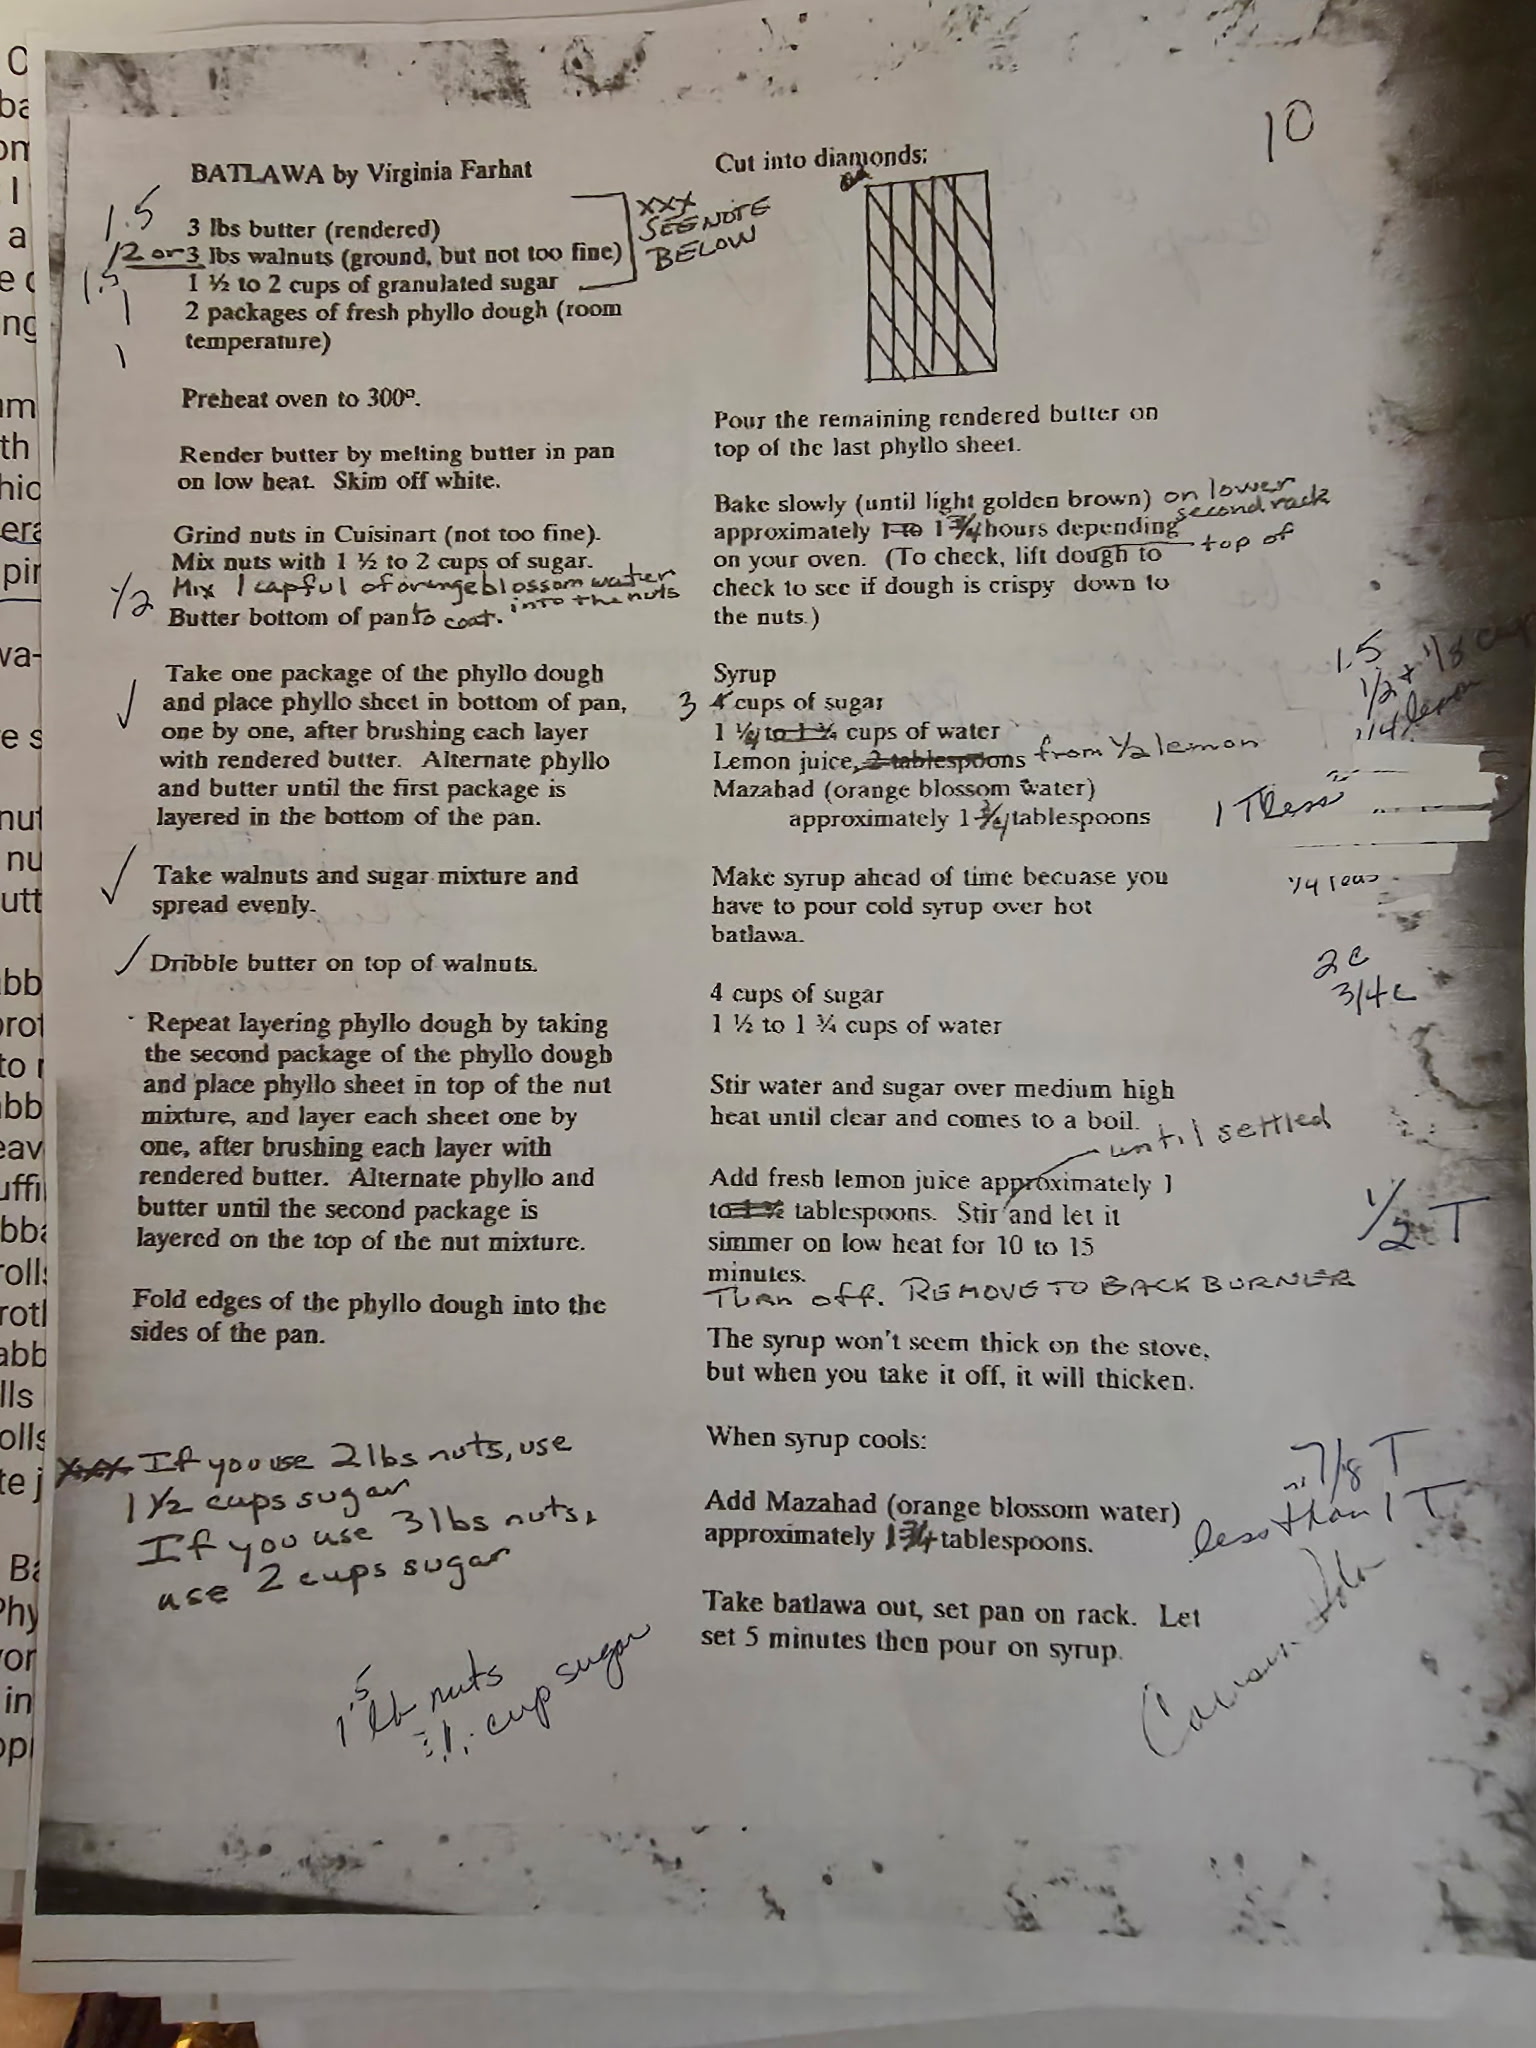 10
BATLAWA by Virginia Farhat
1.5 3 lbs butter (rendered)
2 or 3 lbs walnuts (ground, but not too fine)
1.5 1 ½ to 2 cups of granulated sugar
1 2 packages of fresh phyllo dough (room
1 temperature)
xxx
SEE NOTE
BELOW
Preheat oven to 300º.
Render butter by melting butter in pan
on low heat. Skim off white.
Grind nuts in Cuisinart (not too fine).
Mix nuts with 1 ½ to 2 cups of sugar.
½ Mix 1 capful of orange blossom water
into the nuts
Butter bottom of pan to coat.
Take one package of the phyllo dough
and place phyllo sheet in bottom of pan,
one by one, after brushing each layer
with rendered butter. Alternate phyllo
and butter until the first package is
layered in the bottom of the pan.
Take walnuts and sugar mixture and
spread evenly.
Dribble butter on top of walnuts.
Repeat layering phyllo dough by taking
the second package of the phyllo dough
and place phyllo sheet in top of the nut
mixture, and layer each sheet one by
one, after brushing each layer with
rendered butter. Alternate phyllo and
butter until the second package is
layered on the top of the nut mixture.
Fold edges of the phyllo dough into the
sides of the pan.
xxx If you use 2 lbs nuts, use
1 ½ cups sugar
If you use 3 lbs nuts,
use 2 cups sugar
1.5 lb nuts
1 cup sugar
Cut into diamonds:
Pour the remaining rendered butter on
top of the last phyllo sheet.
Bake slowly (until light golden brown) on lower
second rack
approximately 1 to 1 ¾ hours depending
top of
on your oven. (To check, lift dough to
check to see if dough is crispy down to
the nuts.)
Syrup
3 4 cups of sugar 1.5
1 ¼ to 1 ¾ cups of water ½ + 1/8 cup
Lemon juice, 2 tablespoons from ½ lemon 1/4 lemon
Mazahad (orange blossom water)
approximately 1 ¾ tablespoons 1 T less
Make syrup ahead of time becuase you
have to pour cold syrup over hot
batlawa.
4 cups of sugar 2 c
1 ½ to 1 ¾ cups of water 3/4 c
Stir water and sugar over medium high
heat until clear and comes to a boil.
until settled
Add fresh lemon juice approximately 1
to 1 ½ tablespoons. Stir and let it ½ T
simmer on low heat for 10 to 15
minutes.
Turn off. REMOVE TO BACK BURNER
The syrup won't seem thick on the stove,
but when you take it off, it will thicken.
When syrup cools:
7/8 T
Add Mazahad (orange blossom water)
approximately 1 ¾ tablespoons. less than 1 T
Take batlawa out, set pan on rack. Let
set 5 minutes then pour on syrup.